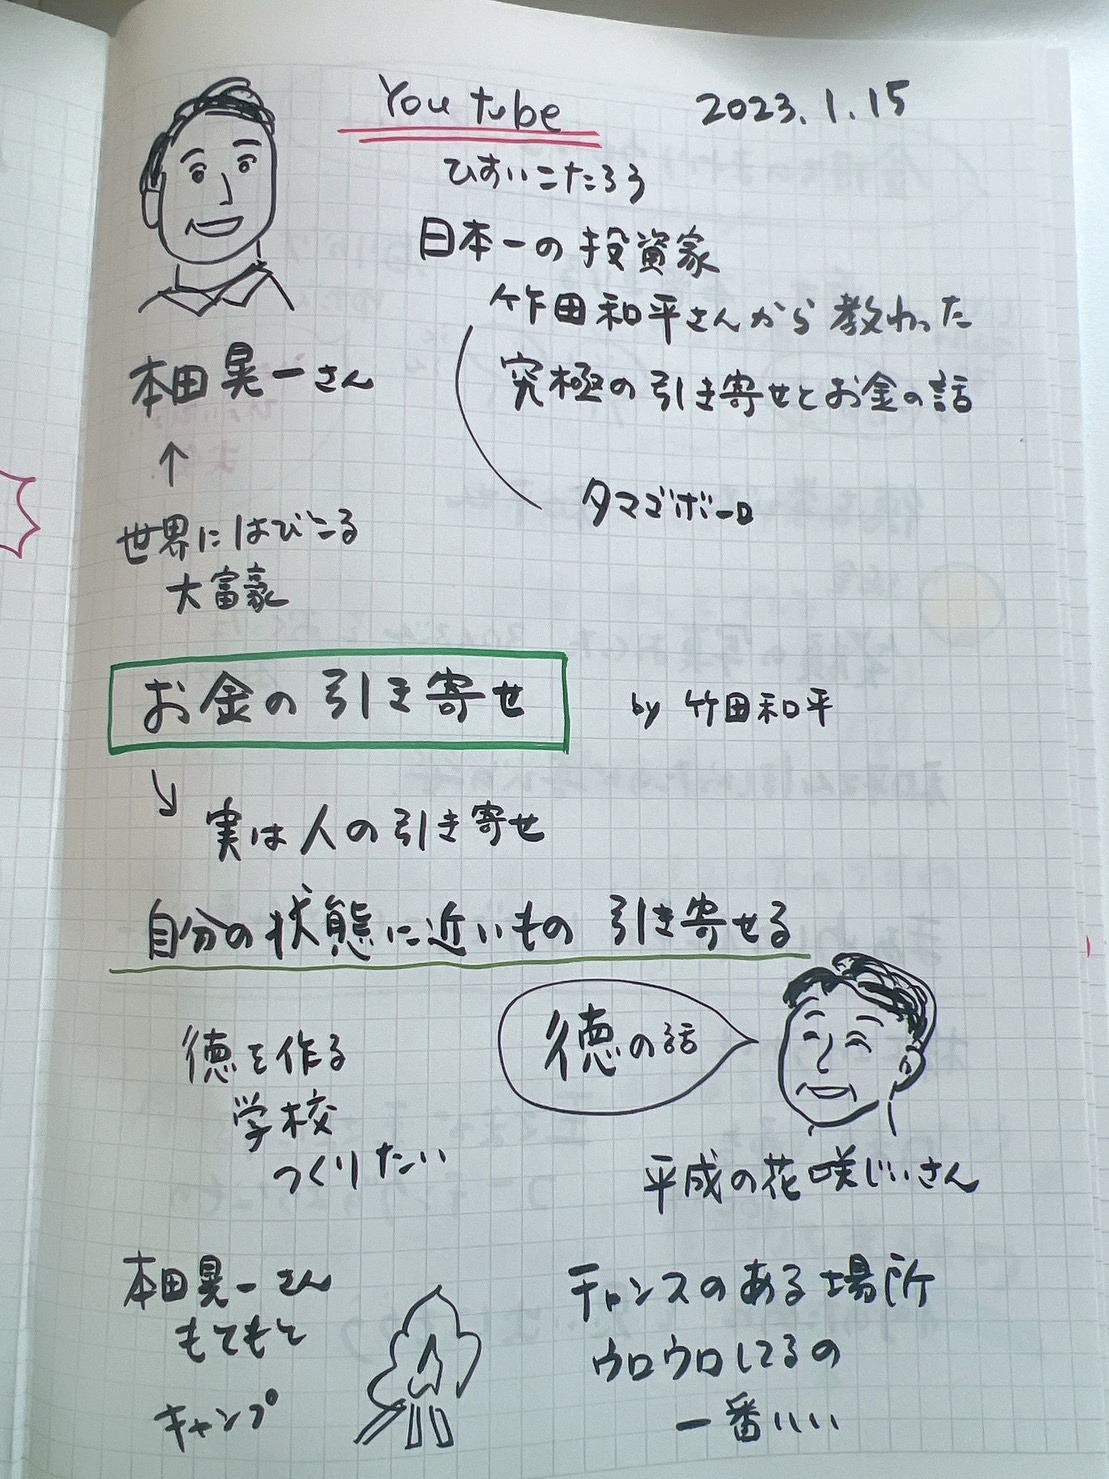 You tube
2023.1.15
ひすいこたろう
日本一の投資家
竹田和平さんから教わった
究極の引き寄せとお金の話
タマゴボーロ
本田晃一さん
↑
世界にはびこる
大富豪
お金の引き寄せ
by 竹田和平
実は人の引き寄せ
自分の状態に近いもの 引き寄せる
徳を作る
学校
つくりたい
徳の話
平成の花咲じいさん
本田晃一さん
もてもて
キャンプ
チャンスのある場所
ウロウロしてるの
一番いい